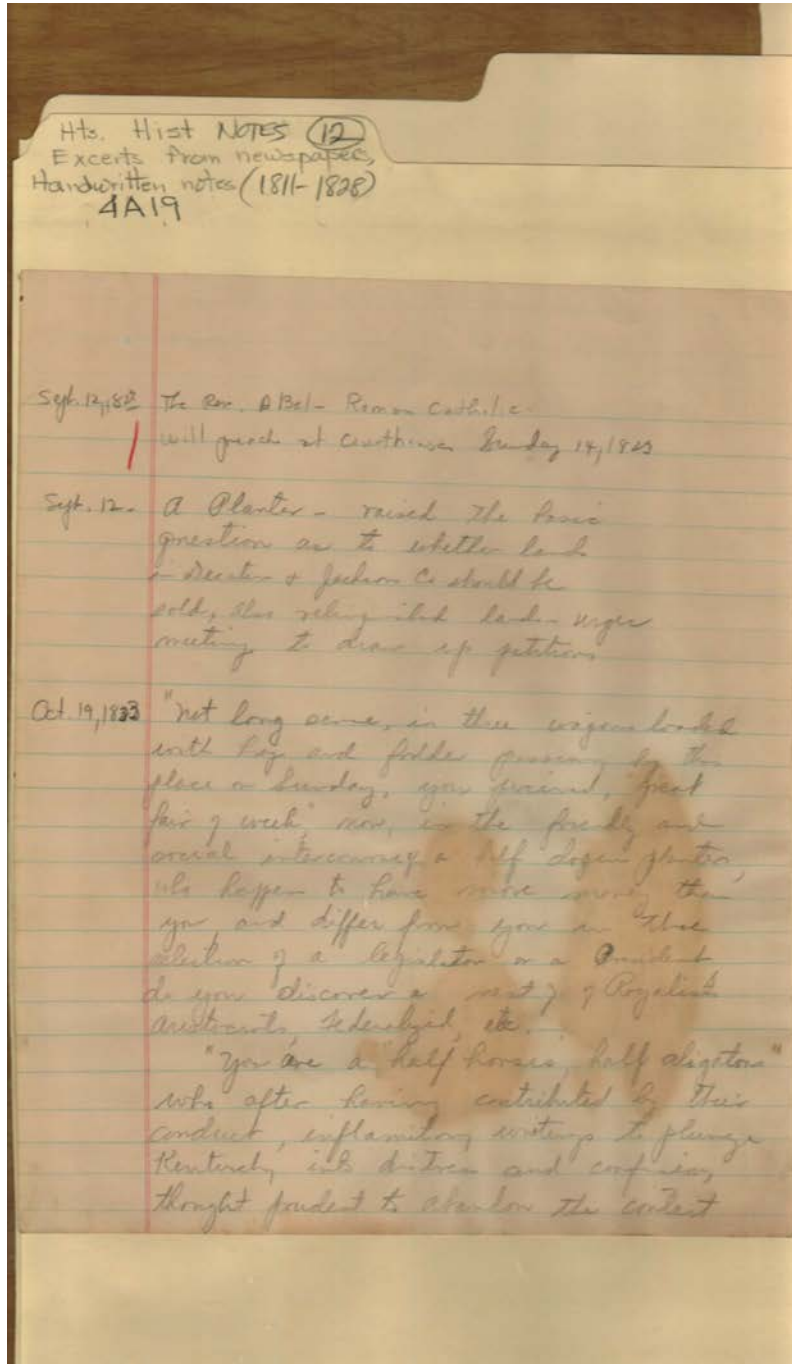 Hts. Hist NOTES (12)
Excerts from newspapers,
Handwritten notes (1811-1828)
4A19
Sept. 12, The Rev. Abel - Roman Catholic
will preach at Courthouse Sunday 14, 1823
Sept. 12 - A Planter - raised the basic
question as to whether lands
in Decatur & Jackson Co should be
sold, also relinquished lands urges
meeting to draw up petitions
Oct. 19, 1823 "Not long since, in three wagons loaded
with hay and fodder passing by this
place on Sunday, you
of week", now, in the friendly and
social a half dozen planters,
who happen to have more money than
you and differ from you in the
selection of a legislator or a President
do you discover a of Royalists
aristocrats, etc.
"You are a "half horses, half aligators"
who after having contributed by their
conduct, inflamitory writings to plunge
Kentucky into distress and confusion,
thought prudent to abandon the contest